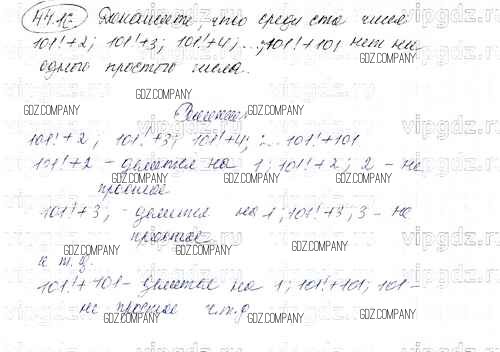 44.12 Докажите, что среди ста чисел
101!+2; 101!+3; 101!+4; ...; 101!+101 нет ни
одного простого числа.
GDZ.COMPANY
Решение:
GDZ.COMPANY GDZ.COMPANY
101!+2; 101!+3; 101!+4; ... 101!+101
101!+2 - делится на 1; 101!+2; 2 - не
GDZ.COMPANY GDZ.COMPANY GDZ.COMPANY
простое
101!+3; - делится на 1; 101!+3; 3 - не
GDZ.COMPANY GDZ.COMPANY
простое
GDZ.COMPANY GDZ.COMPANY
и т. д.
101!+101 - делится на 1; 101!+101; 101 -
- не простое ч.т.д
GDZ.COMPANY GDZ.COMPANY GDZ.COMPANY
vipgdz.ru